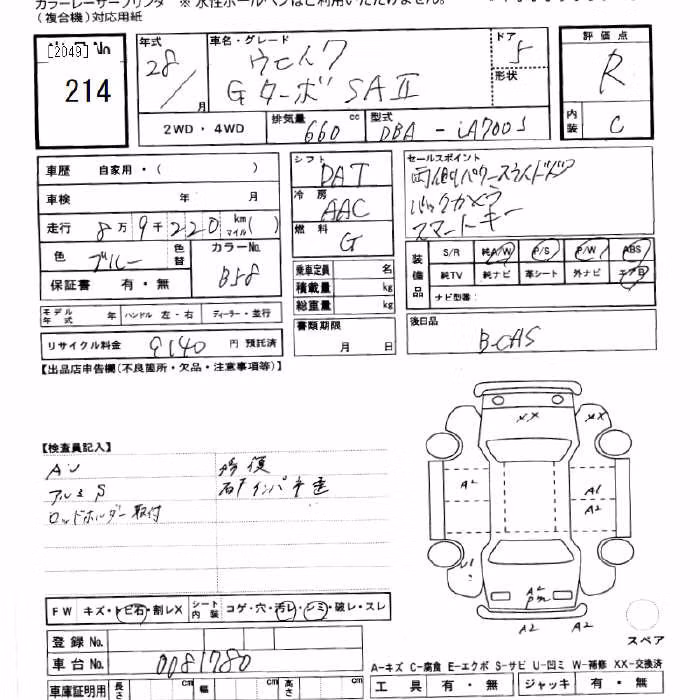 カラーレーザープリンタ ※ 水性ボールペンはご利用いただけません。
(複合機)対応用紙
[2049]
214
年式 28/ 月
車名・グレード ウェイク
Gターボ SAⅡ
ドア 5
形状
2WD・4WD
排気量 660 cc
型式 DBA-LA700S
評価点 R
内装 C
車歴 自家用・( )
車検 年 月
走行 8万9千220 km マイル( )
色 ブルー
色替
カラーNo. B58
保証書 有・無
シフト DAT
冷房 AAC
燃料 G
乗車定員 名
積載量 kg
総重量 kg
セールスポイント
両側パワースライドドア
バックカメラ
スマートキー
装備品
S/R 純A/W P/S P/W ABS
純TV 純ナビ 革シート 外ナビ エアB
ナビ型番:
モデル年式 年 ハンドル 左・右 ディーラー・並行
リサイクル料金 9140 円 預託済
書類期限 月 日
後日品 B-CAS
【出品店申告欄(不良箇所・欠品・注意事項等)】
【検査員記入】
AU
アルミS
ロッドホルダー取付
XX
XX
A2
A1
A2
U1
A2
A2
A2
スペア
FW キズ・トビ石・割レX
シート内装 コゲ・穴・汚レ・シミ・破レ・スレ
登録No.
車台No. 0081780
車庫証明用 長さ cm 幅 cm 高さ cm
A-キズ C-腐食 E-エクボ S-サビ U-凹ミ W-補修 XX-交換済
工具 有・無 ジャッキ 有・無